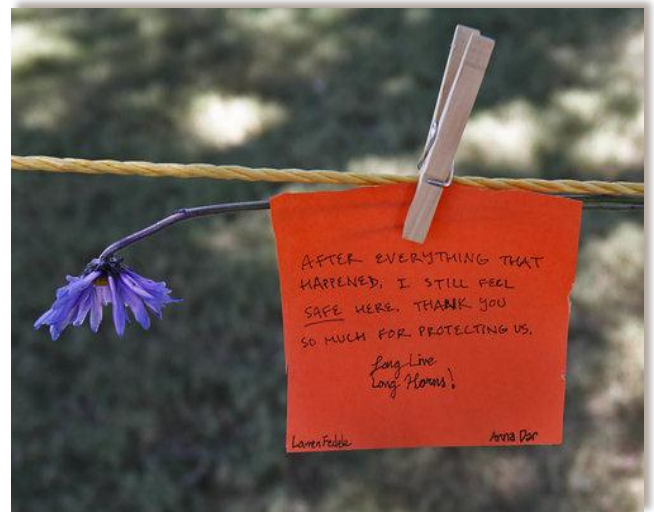 AFTER EVERYTHING THAT
HAPPENED, I STILL FEEL
SAFE HERE. THANK YOU
SO MUCH FOR PROTECTING US.
Long Live
Long Horns!
Lauren Anna Dar